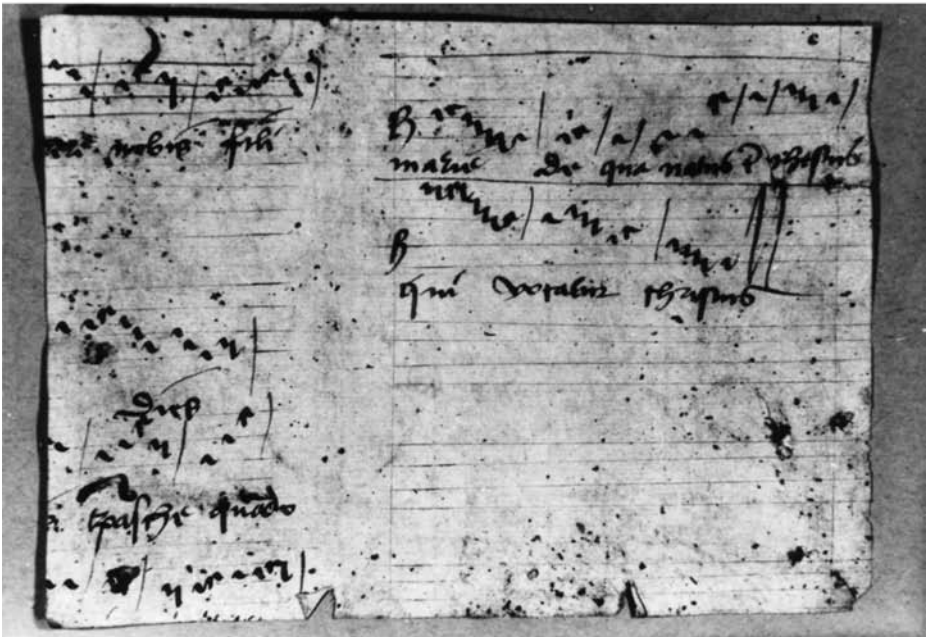 nobis fili
dies
pasche quādo
c
marie de qua natus ē Jhesus
qui vocatur christus